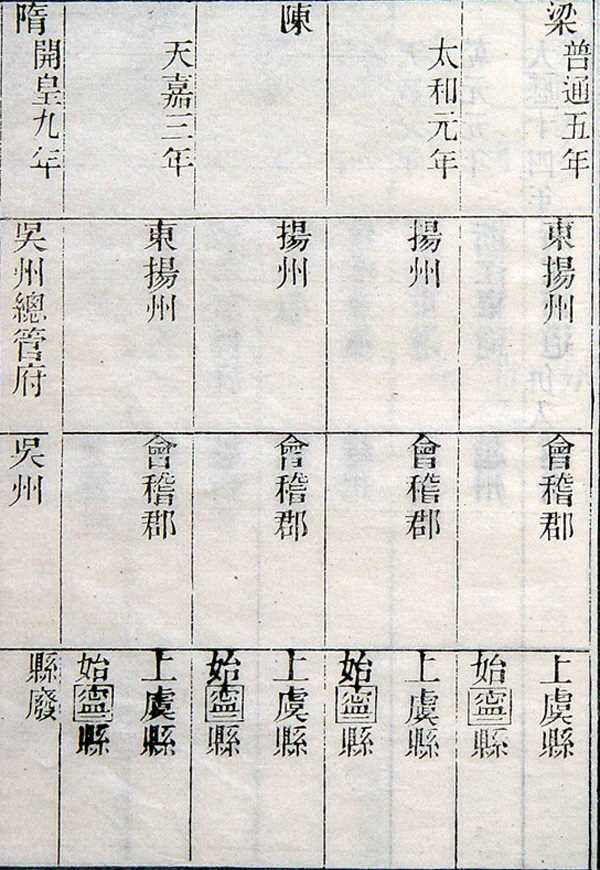 梁
普通五年
東揚州
會稽郡
上虞縣
始寧縣
太和元年
揚州
會稽郡
上虞縣
始寧縣
陳
揚州
會稽郡
上虞縣
始寧縣
天嘉三年
東揚州
會稽郡
上虞縣
始寧縣
隋
開皇九年
吳州總管府
吳州
縣廢